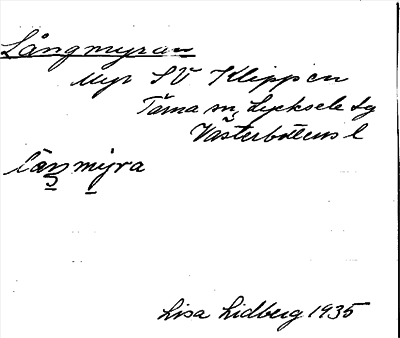 Långmyran
Myr SV Klippen
Tärna sn, Lycksele lg
Västerbottens l
låŋmyra
Lisa Lidberg 1935